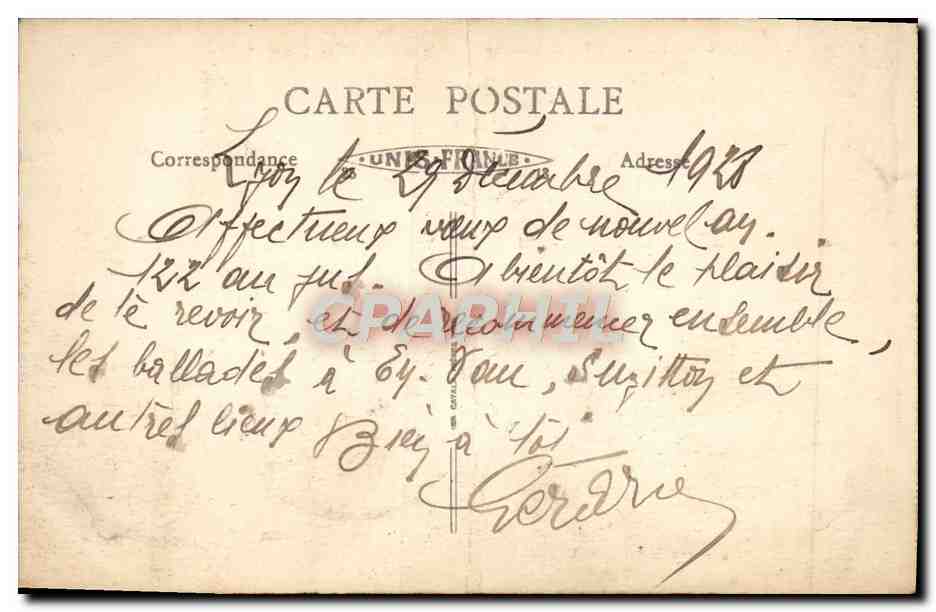 CARTE POSTALE
Correspondance
UNIS-FRANCE
Adresse
Lyon le 29 Décembre 1928
Affectueux vœux de nouvel an.
122 au jus. A bientôt le plaisir
de te revoir, et de recommencer ensemble,
les ballades à et
autres lieux Bien à toi
CPARHIL